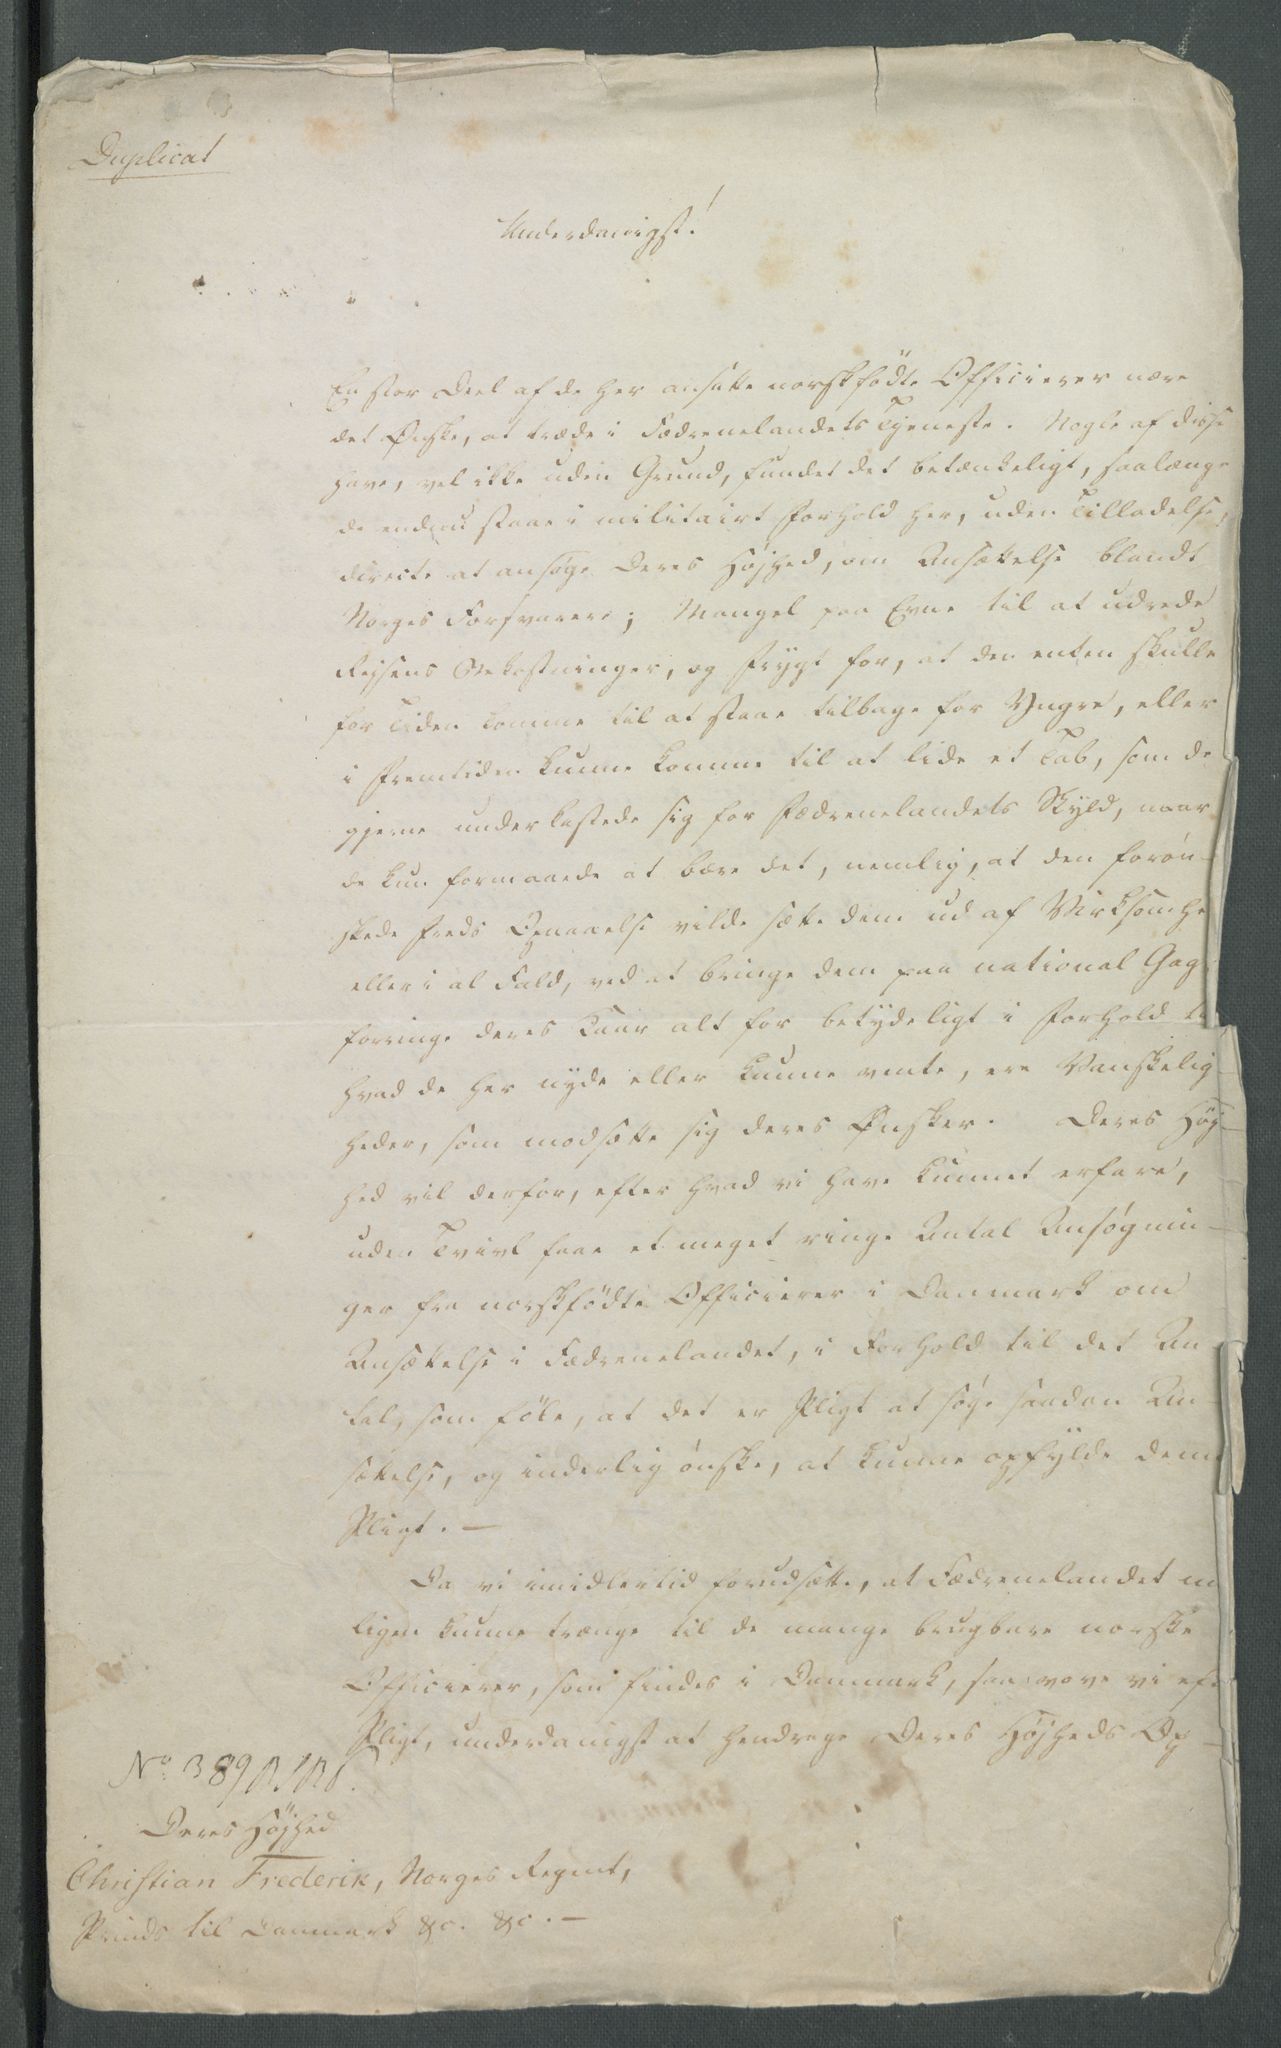 Duplicat
Underdanigst!
En stor Deel af de her ansatte norskfödte Officierer nære
det Ønske, at træde i Fædrenelandets Tjeneste. Nogle af disse
have, vel ikke uden Grund, fundet det betænkeligt, saalænge
de endnu staae i militairt Forhold her, uden Tilladelse,
directe at ansøge Deres Höjhed, om Ansættelse blandt
Norges Forsvarere; Mangel paa Evne til at udrede
Rejsens Omkostninger, og Frygt for, at den enten skulle
for Tiden komme til at staae tilbage for Yngre, eller
i Fremtiden kunne komme til at lide et Tab, som de
gjerne underkastede sig for Fædrenelandets Skyld, naar
de kun formaaede at bære det, nemlig, at den forön-
skede Freds Opnaaelse vilde sætte dem ud af Virksomhe
eller i al Fald, ved at bringe dem paa national Gage
forringe deres Kaar alt for betydeligt i Forhold til
hvad de her nyde eller kunne vente, ere Vanskelig-
heder, som modsætte sig deres Ønsker. Deres Höj-
hed vil derfor, efter hvad vi have kunnet erfare,
uden Tvivl faae et meget ringe Antal Ansøgnin-
ger fra norskfödte Officierer i Danmark om
Ansættelse i Fædrenelandet, i Forhold til det An-
tal, som föle, at det er Pligt at söge saadan An-
sættelse, og inderlig önske, at kunne opfylde denne
Pligt. —
Da vi imidlertid forudsætte, at Fædrenelandet m
ligen kunne trænge til de mange brugbare norske
Officierer, som findes i Danmark, saa vove vi eft
Pligt, underdanigst at hendrage Deres Höjheds Op-
No. 389
Deres Höjhed
Christian Frederik, Norges Regent,
Prinds til Danmark &c. &c. —